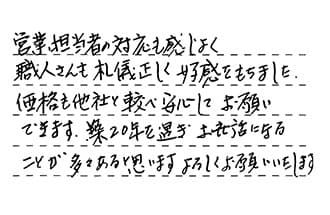 営業担当者の対応も感じよく
職人さんも札儀正しく好感をもちました.
価格も他社と較べ安心してお願い
できます.築20年を過ぎお世話になる
ことが多々あると思いますよろしくお願いいたします